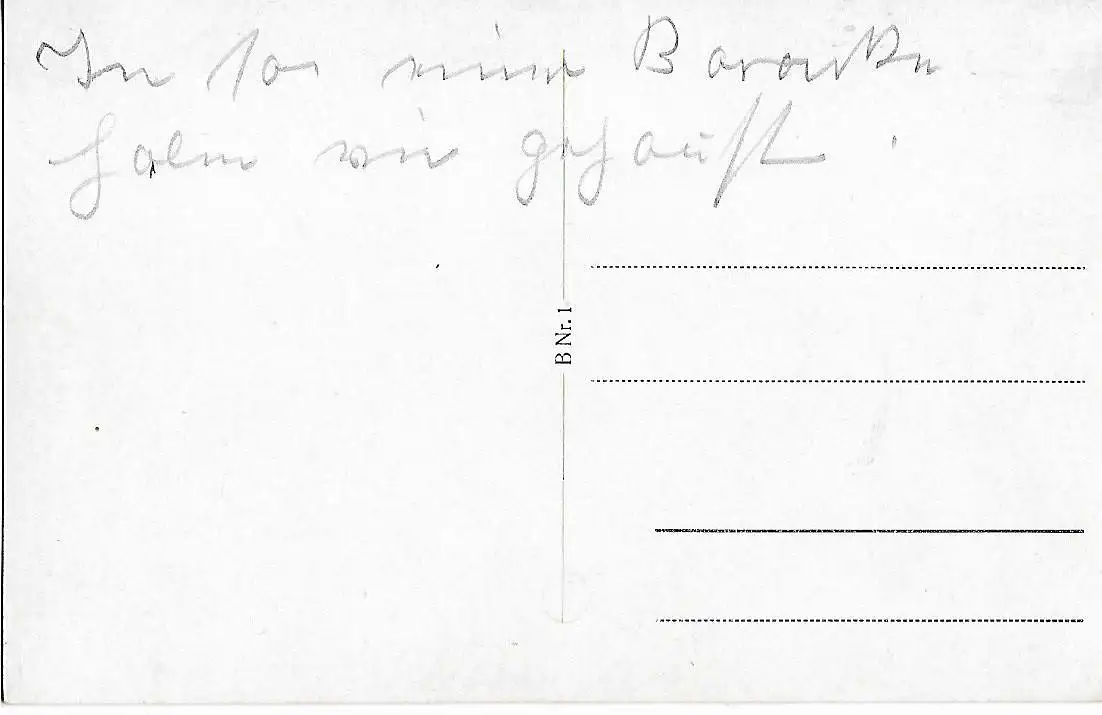 In so einer Baracke
haben wir gehaust.
B Nr. 1